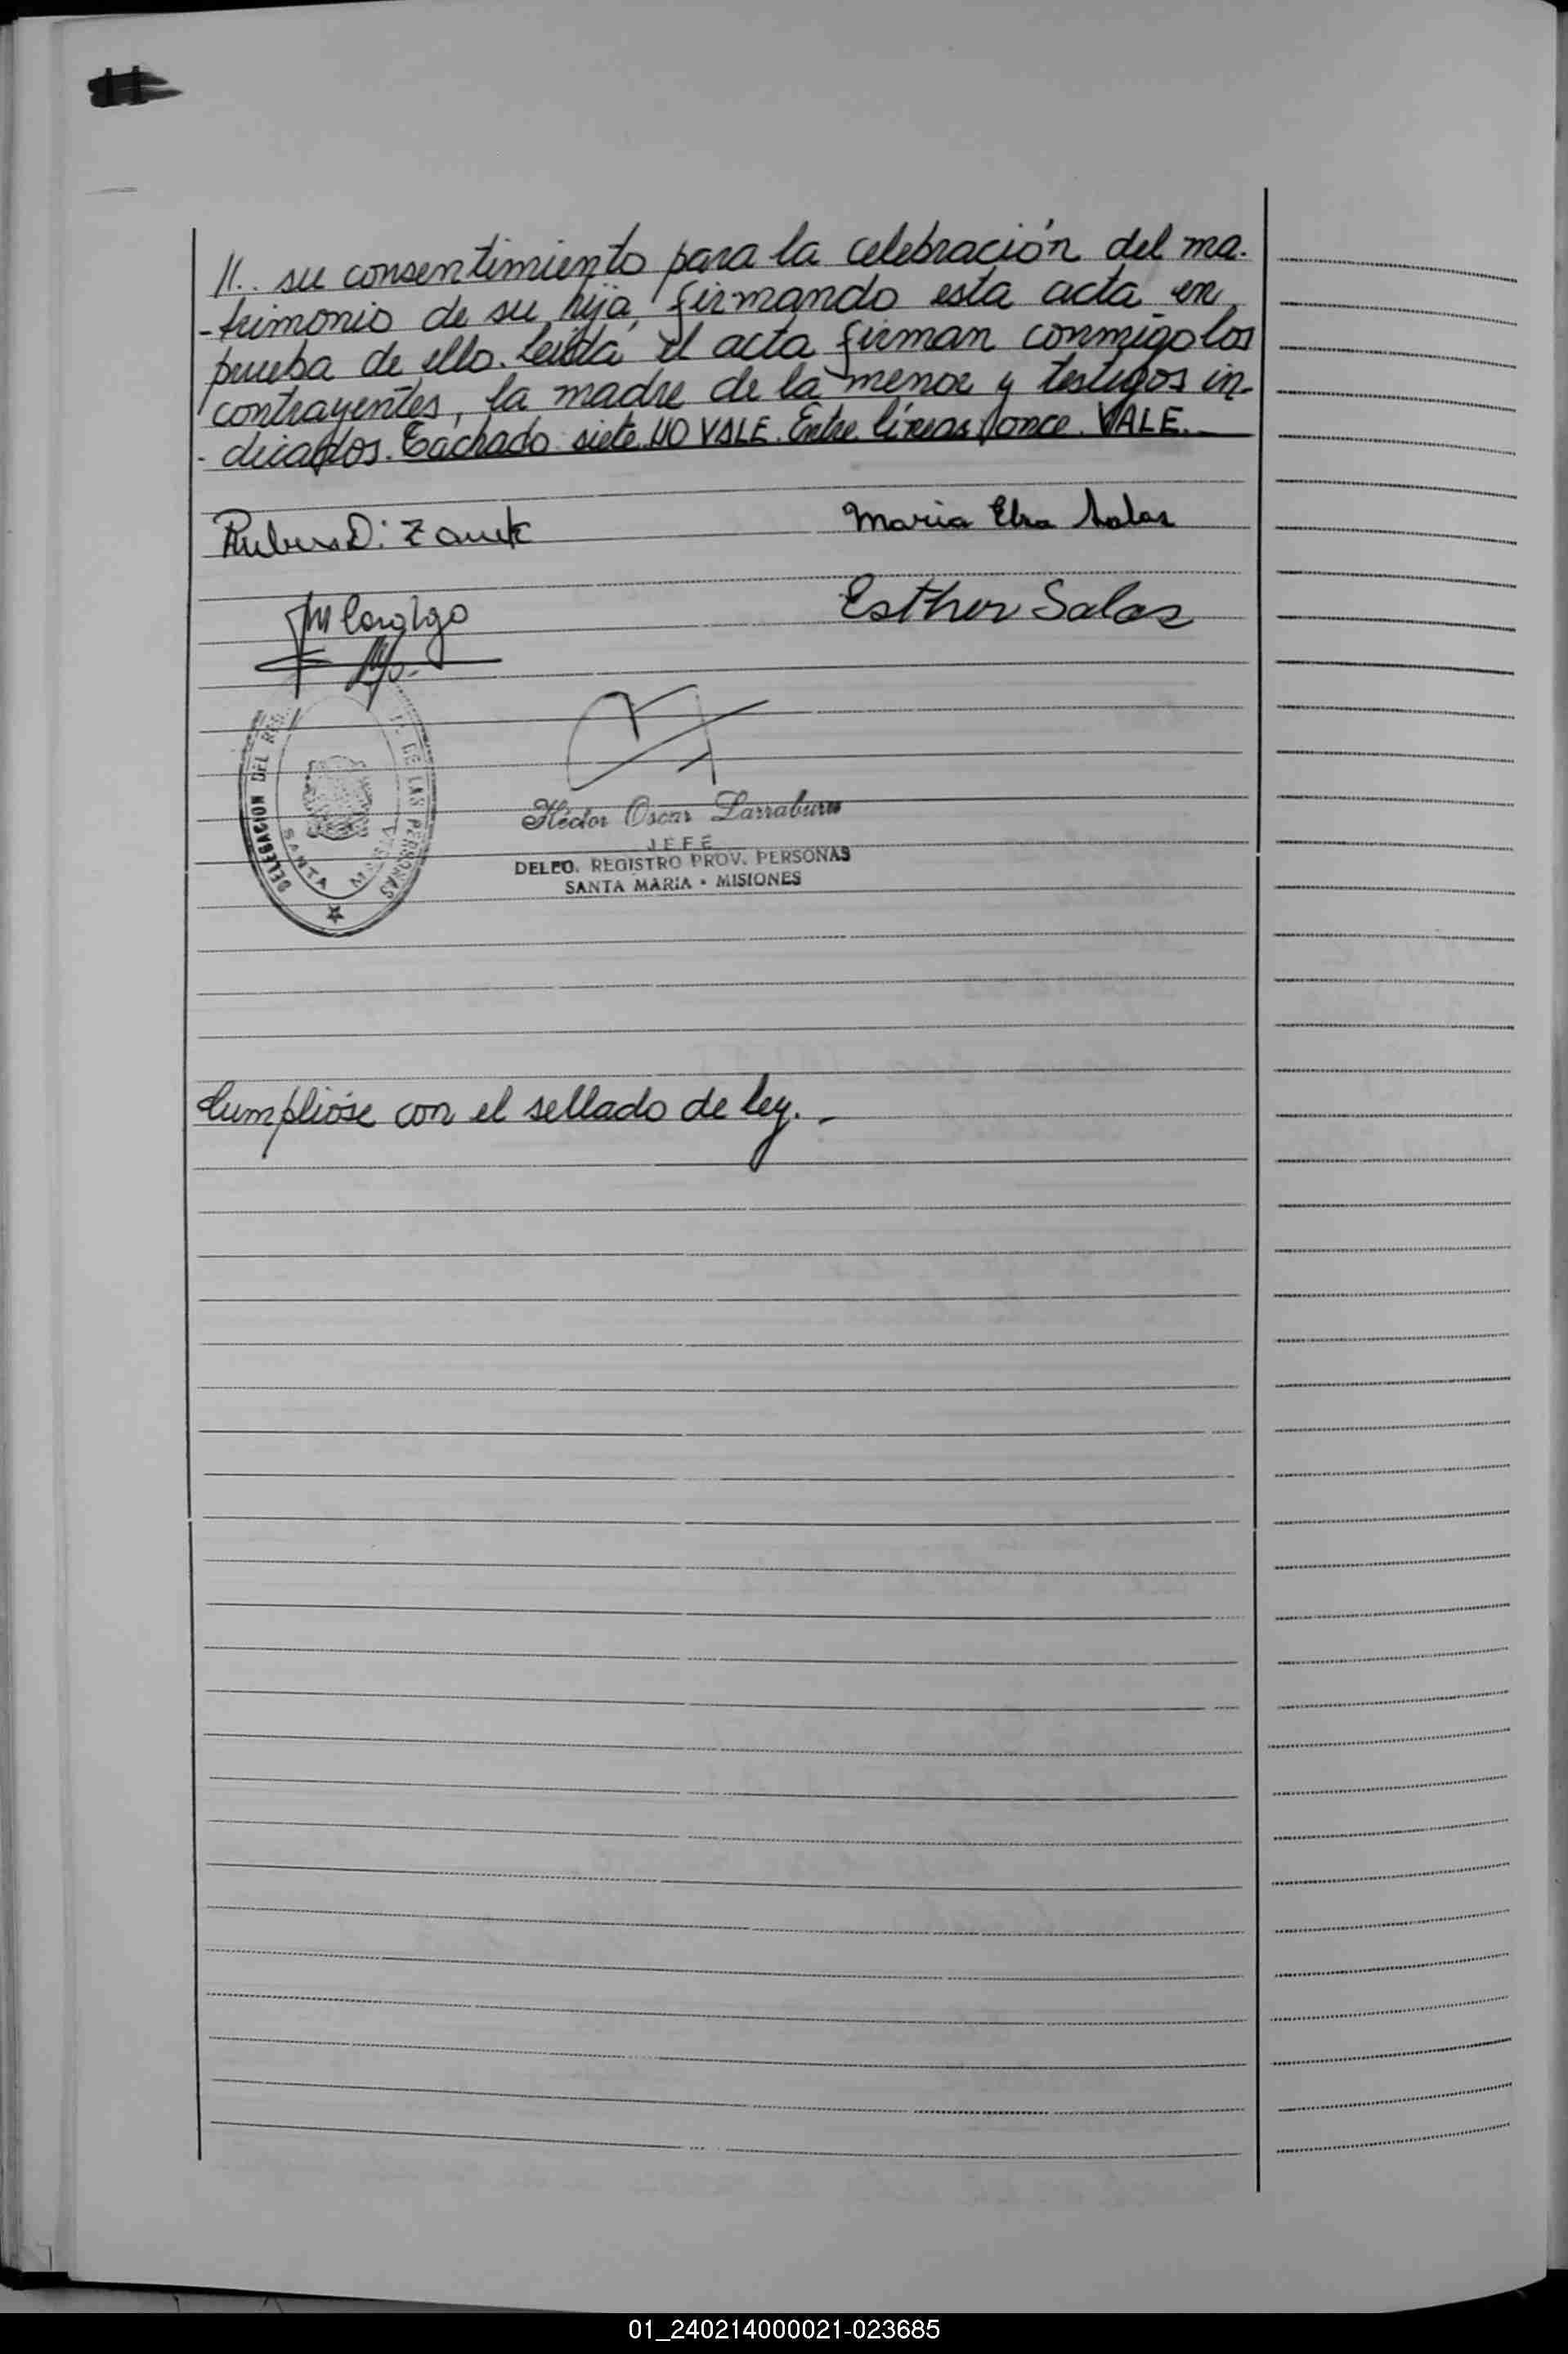 11
//.. su consentimiento para la celebración del ma-
-trimonio de su hija, firmando esta acta en
prueba de ello. Leída el acta firman conmigo los
contrayentes, la madre de la menor y testigos in-
- dicados. Tachado: siete. NO VALE. Entre líneas: once. VALE.
Maria Elsa Salas
Esther Salas
Héctor Oscar Larraburu
JEFE
DELEG. REGISTRO PROV. PERSONAS
SANTA MARIA - MISIONES
DELEGACION DEL REG. DE LAS PERSONAS
SANTA MARIA
Cumplióse con el sellado de ley. -
01_240214000021-023685